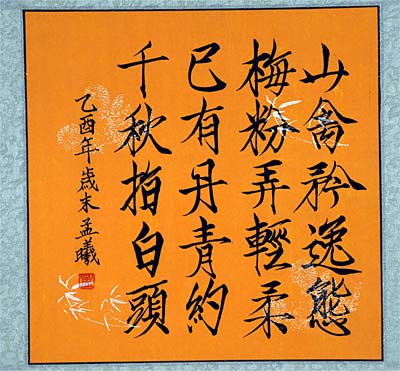 山禽矜逸態
梅粉弄輕柔
已有丹青約
千秋指白頭
乙酉年歲末孟曦